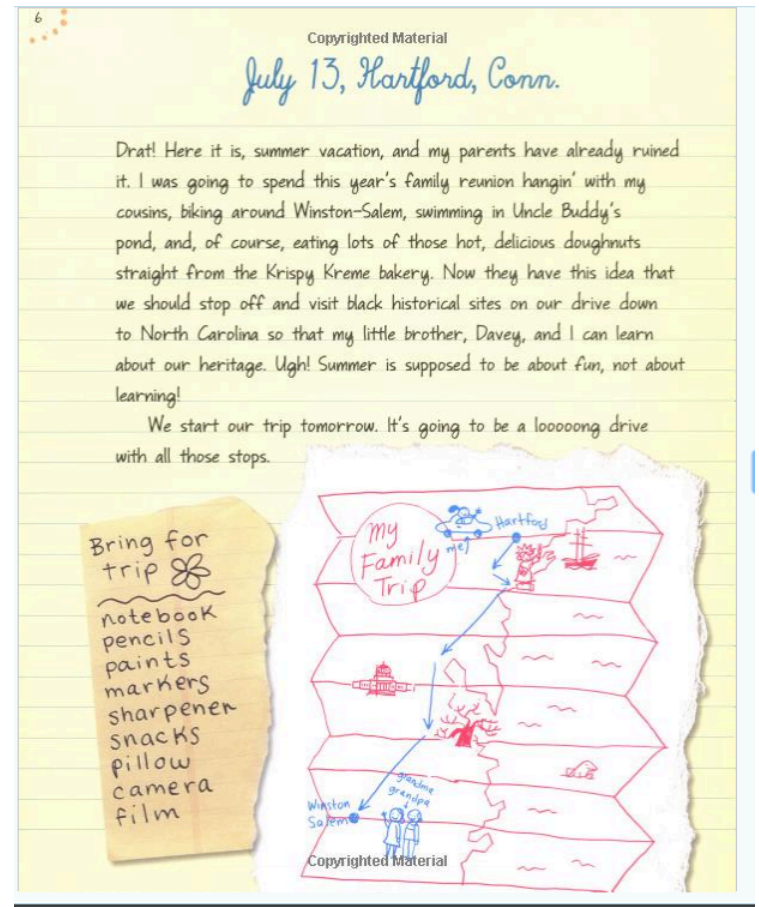 6
Copyrighted Material
July 13, Hartford, Conn.
Drat! Here it is, summer vacation, and my parents have already ruined
it. I was going to spend this year's family reunion hangin' with my
cousins, biking around Winston-Salem, swimming in Uncle Buddy's
pond, and, of course, eating lots of those hot, delicious doughnuts
straight from the Krispy Kreme bakery. Now they have this idea that
we should stop off and visit black historical sites on our drive down
to North Carolina so that my little brother, Davey, and I can learn
about our heritage. Ugh! Summer is supposed to be about fun, not about
learning!
We start our trip tomorrow. It's going to be a looooong drive
with all those stops.
Bring for
trip
notebook
pencils
paints
markers
sharpener
snacks
pillow
camera
film
My
Family
Trip
me
Hartford
grandma
grandpa
Winston
Salem
Copyrighted Material